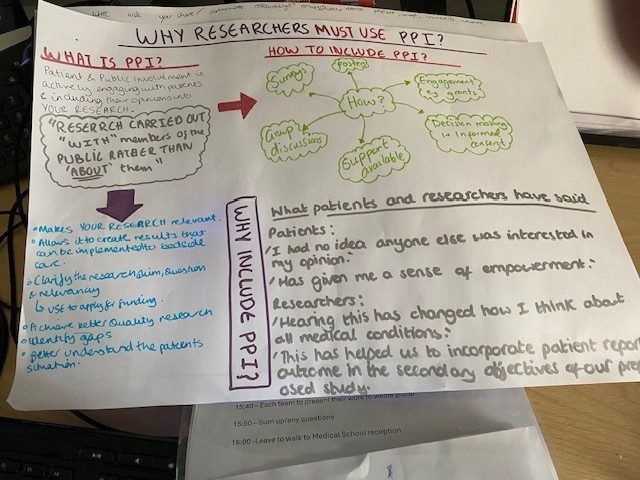 WHY RESEARCHERS MUST USE PPI?
WHAT IS PPI?
Patient & Public Involvement is
actively engaging with patients
& including their opinions into
YOUR RESEARCH.
"RESEARCH CARRIED OUT
"WITH" members of the
PUBLIC RATHER THAN
'ABOUT' them"
HOW TO INCLUDE PPI?
How?
Surveys
Posters
Engagement
eg grants
Decision making
in informed
consent
Support
available
Group
discussions
WHY INCLUDE PPI?
• Makes YOUR RESEARCH relevant.
• Allows it to create results that
can be implemented to bedside
care.
• Clarify the research aim, question
& relevancy
↳ use to apply for funding.
• Achieve better Quality research
• Identify gaps
• Better understand the patients
situation.
What patients and researchers have said
Patients:
'I had no idea anyone else was interested in
my opinion.'
'Has given me a sense of empowerment.'
Researchers:
'Hearing this has changed how I think about
all medical conditions.'
'This has helped us to incorporate patient report
outcome in the secondary objectives of our prop-
osed study.
15:40 – Each team to present their work to whole group
15:50 – Sum up/any questions
16:00 - Leave to walk to Medical School reception